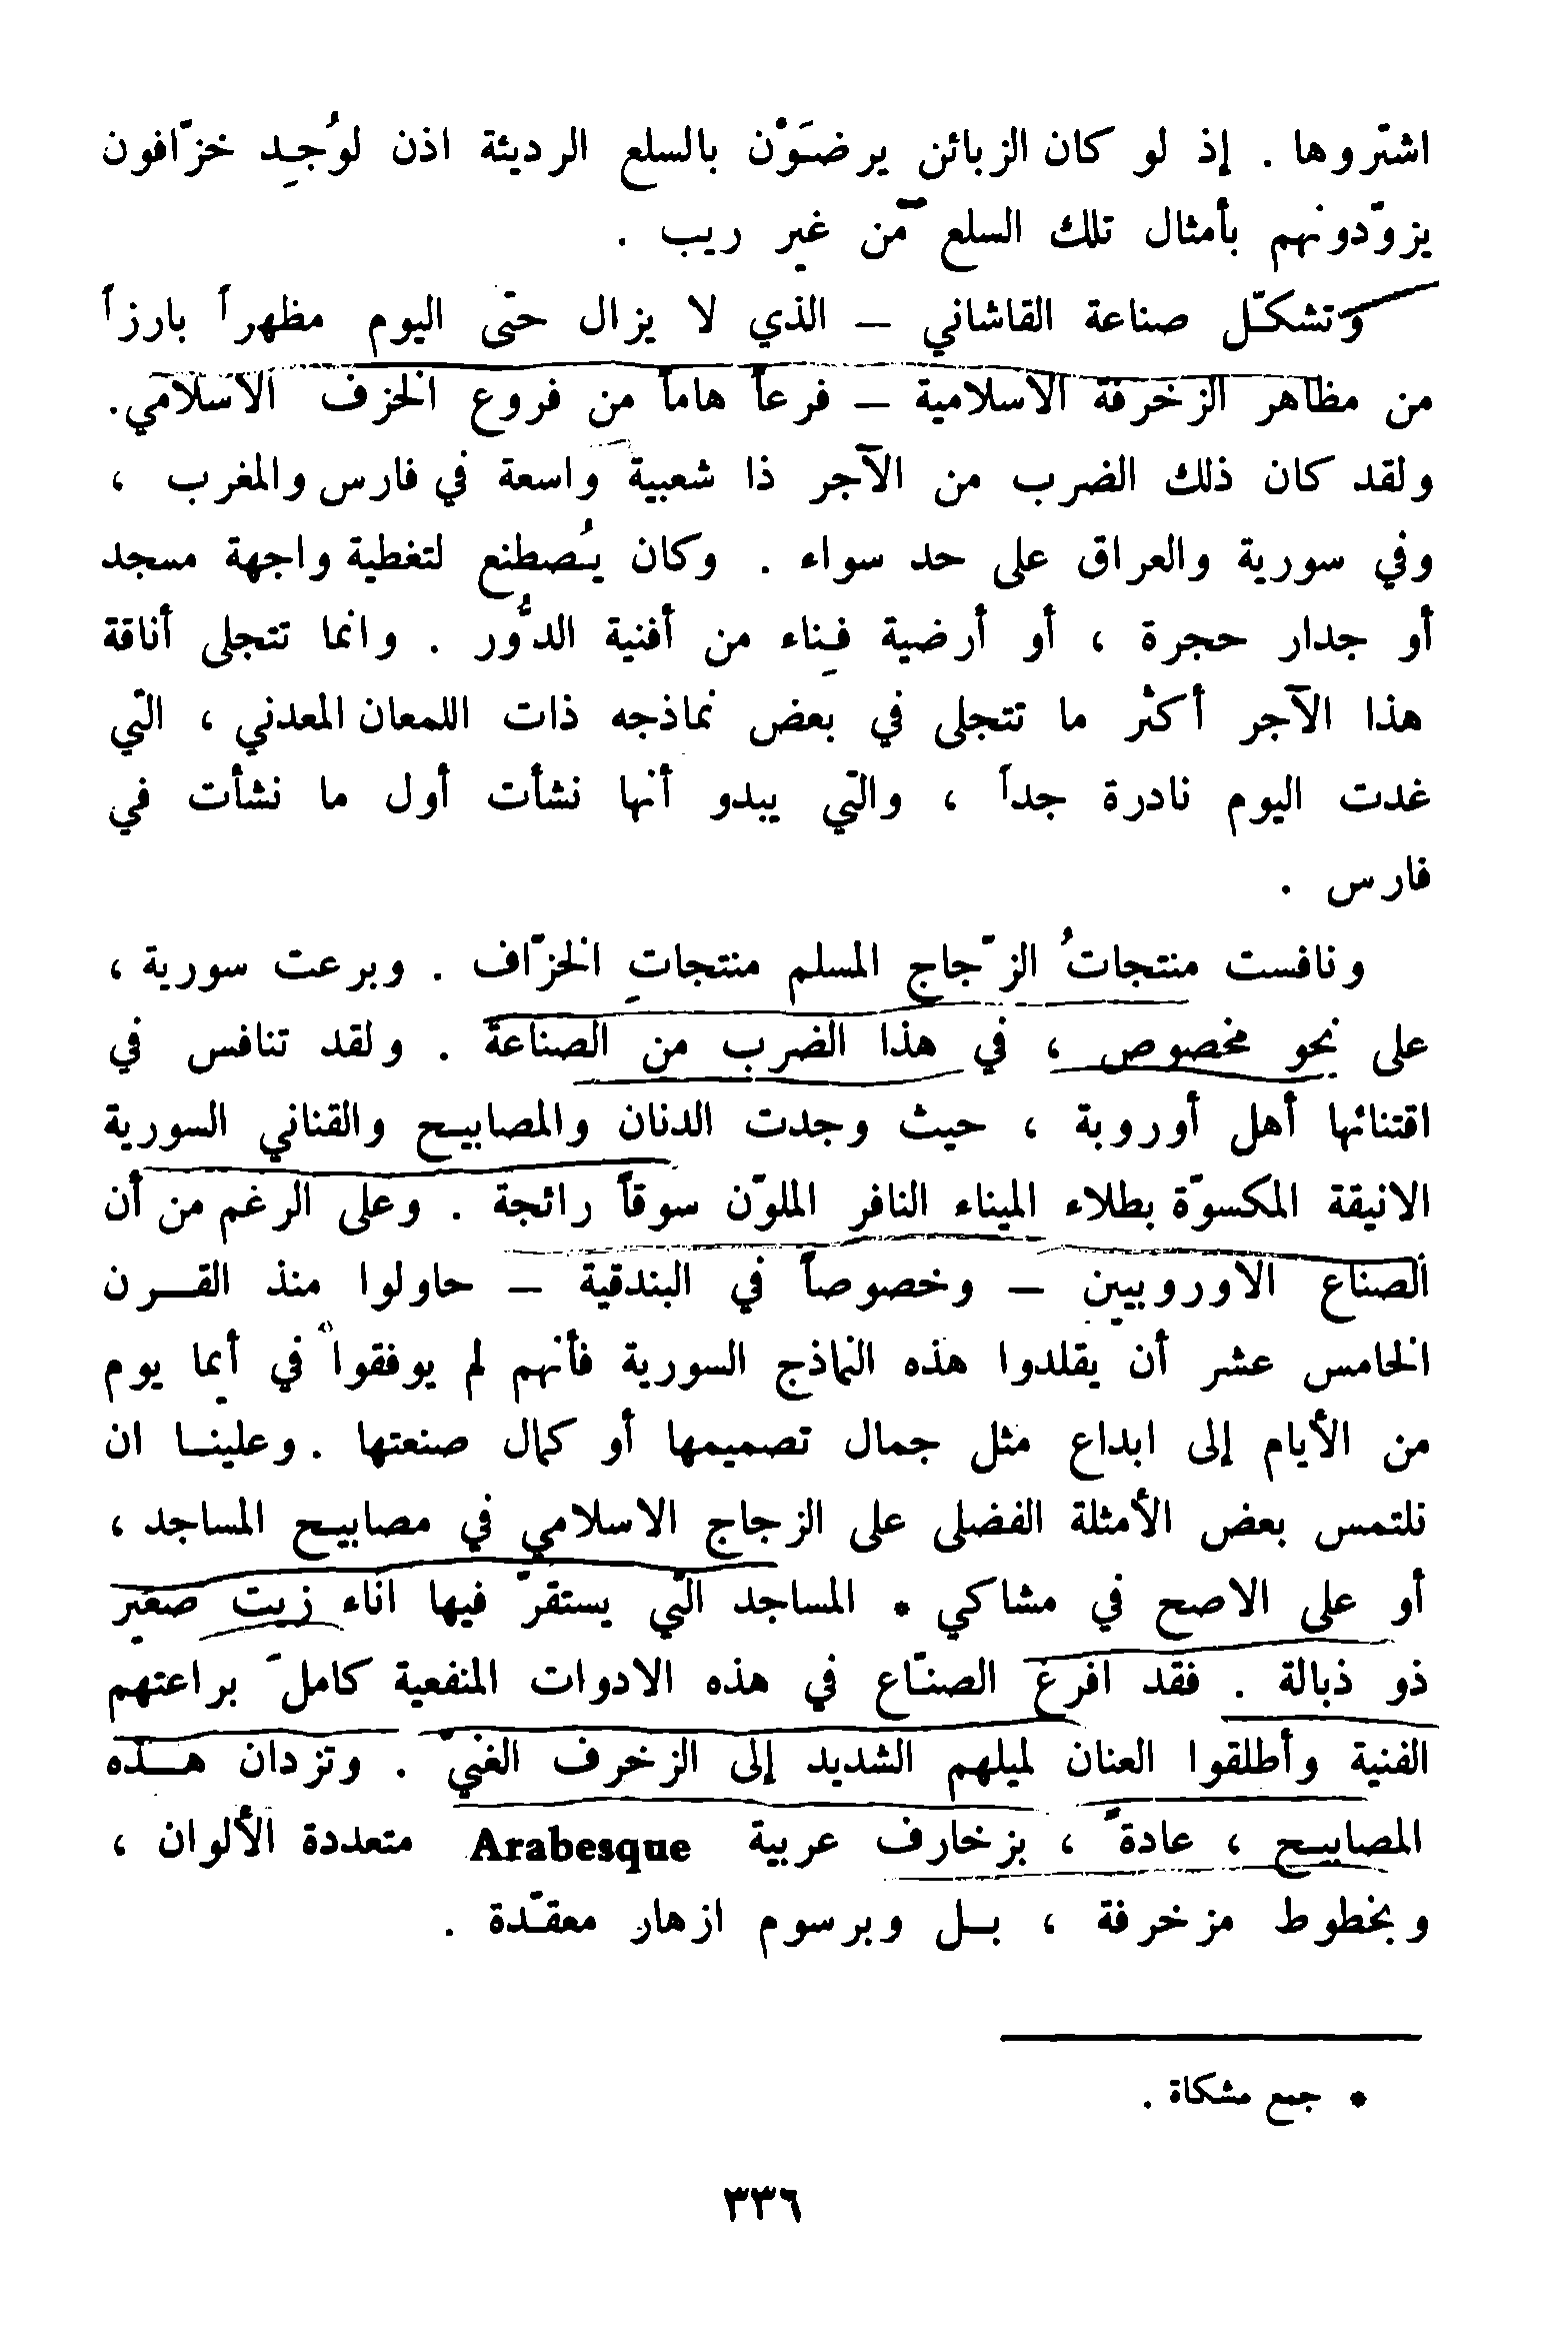 اشتروها . إذ لو كان الزبائن يرضَوْن بالسلع الرديئة اذن لوُجِد خزّافون
يزوّدونهم بأمثال تلك السلع من غير ريب .
وتشكّل صناعة القاشاني – الذي لا يزال حتى اليوم مظهراً بارزاً
من مظاهر الزخرفة الاسلامية – فرعاً هاماً من فروع الخزف الاسلامي.
ولقد كان ذلك الضرب من الآجر ذا شعبية واسعة في فارس والمغرب ،
وفي سورية والعراق على حد سواء . وكان يُصطنع لتغطية واجهة مسجد
أو جدار حجرة ، أو أرضية فِناء من أفنية الدُّور . وانما تتجلى أناقة
هذا الآجر أكثر ما تتجلى في بعض نماذجه ذات اللمعان المعدني ، التي
غدت اليوم نادرة جداً ، والتي يبدو أنها نشأت أول ما نشأت في
فارس .
ونافست منتجاتُ الزّجاج المسلم منتجاتِ الخزّاف . وبرعت سورية ،
على نحو مخصوص ، في هذا الضرب من الصناعة . ولقد تنافس في
اقتنائها أهل أوروبة ، حيث وجدت الدنان والمصابيح والقناني السورية
الانيقة المكسوّة بطلاء الميناء النافر الملوّن سوقاً رائجة . وعلى الرغم من أن
الصناع الاوروبيين – وخصوصاً في البندقية – حاولوا منذ القرن
الخامس عشر أن يقلدوا هذه النماذج السورية فأنهم لم يوفقوا في أيما يوم
من الأيام إلى ابداع مثل جمال تصميمها أو كمال صنعتها . وعلينا ان
نلتمس بعض الأمثلة الفضلى على الزجاج الاسلامي في مصابيح المساجد ،
أو على الاصح في مشاكي * المساجد التي يستقرّ فيها اناء زيت صغير
ذو ذبالة . فقد افرغ الصنّاع في هذه الادوات المنفعية كاملَ براعتهم
الفنية وأطلقوا العنان لميلهم الشديد إلى الزخرف الغنيّ . وتزدان هذه
المصابيح ، عادةً ، بزخارف عربية Arabesque متعددة الألوان ،
وبخطوط مزخرفة ، بل وبرسوم ازهار معقّدة .
* جمع مشكاة .
٣٣٦